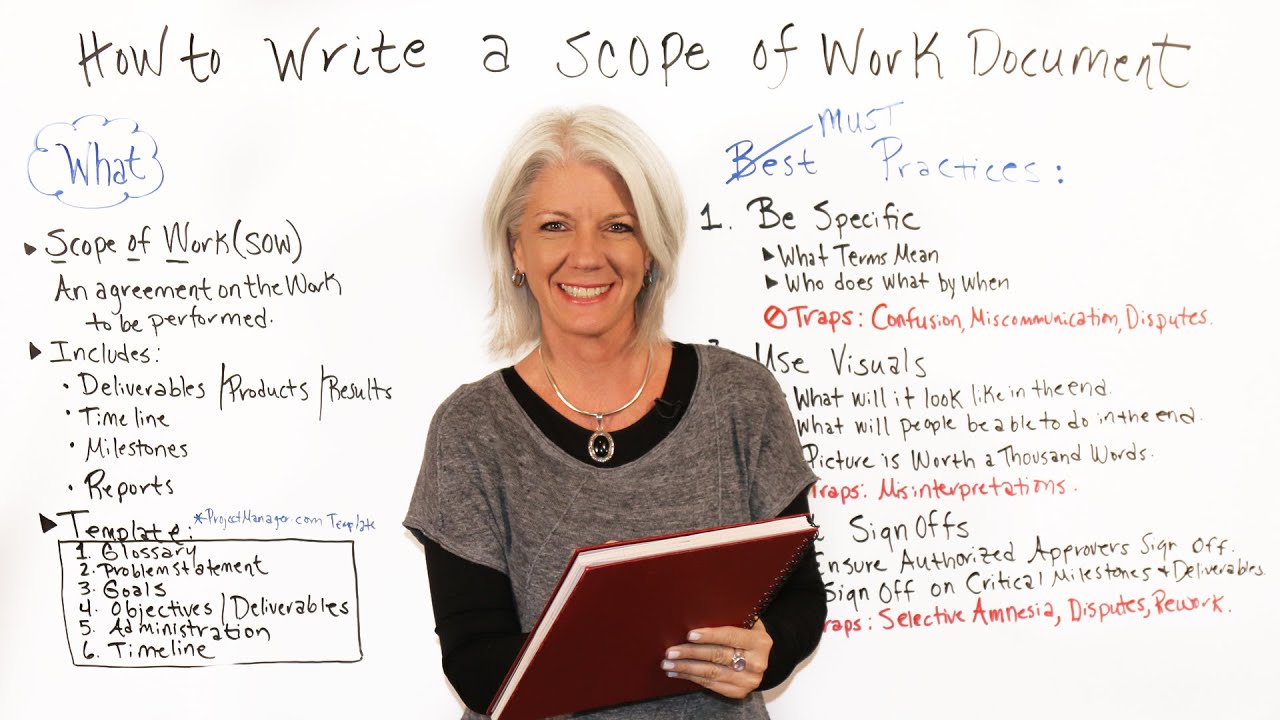 How to Write a Scope of Work Document
What
▶ Scope of Work (SOW)
An agreement on the Work
to be performed.
▶ Includes:
• Deliverables / Products / Results
• Timeline
• Milestones
• Reports
▶ Template: *ProjectManager.com Template
1. Glossary
2. Problem Statement
3. Goals
4. Objectives / Deliverables
5. Administration
6. Timeline
MUST
Best Practices:
1. Be Specific
▶ What Terms Mean
▶ Who does what by when
Traps: Confusion, Miscommunication, Disputes.
Use Visuals
What will it look like in the end.
What will people be able to do in the end.
Picture is Worth a Thousand Words.
Traps: Misinterpretations.
Sign Offs
Ensure Authorized Approvers Sign Off.
Sign Off on Critical Milestones + Deliverables.
Traps: Selective Amnesia, Disputes, Rework.